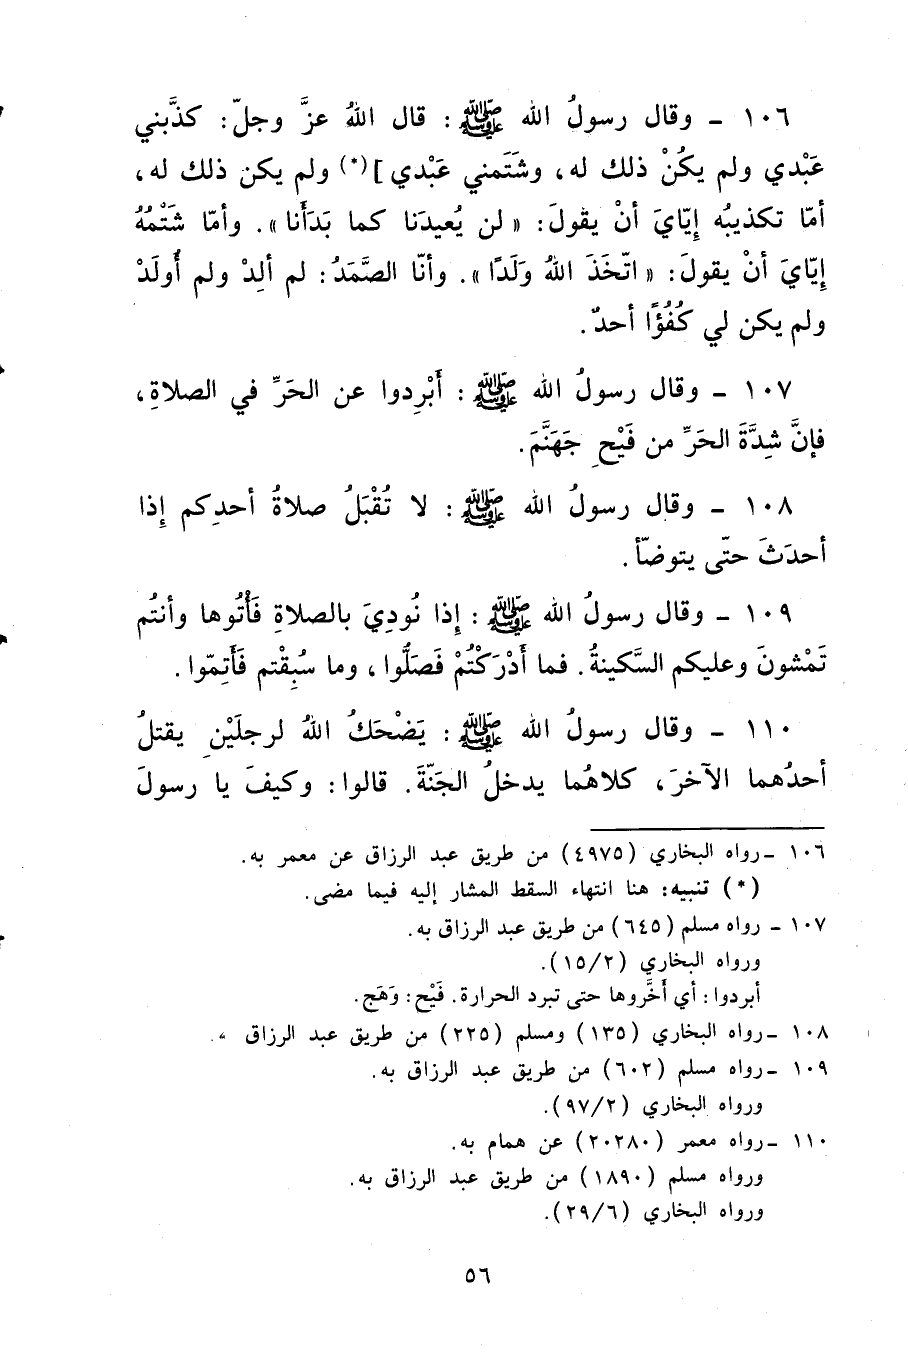 ١٠٦ - وقال رسولُ الله ﷺ : قال اللهُ عزَّ وجلّ : كذَّبني
عَبْدي ولم يكُنْ ذلك له ، وشَتَمني عَبْدي ](*) ولم يكن ذلك له ،
أمّا تكذيبُه إيّايَ أنْ يقولَ : « لن يُعيدَنا كما بَدَأَنا » . وأمّا شَتْمُهُ
إيّايَ أنْ يقولَ : « اتّخَذَ اللهُ وَلَدًا » . وأنّا الصَّمَدُ : لم ألِدْ ولم أُولَدْ
ولم يكن لي كُفُؤًا أحدٌ .
١٠٧ - وقال رسولُ الله ﷺ : أَبْرِدوا عن الحَرِّ في الصلاةِ ،
فإنَّ شِدَّةَ الحَرِّ من فَيْحِ جَهَنَّمَ .
١٠٨ - وقال رسولُ الله ﷺ : لا تُقْبَلُ صلاةُ أحدِكم إذا
أحدَثَ حتّى يتوضّأ .
١٠٩ - وقال رسولُ الله ﷺ : إذا نُودِيَ بالصلاةِ فَأْتُوها وأنتُم
تَمْشونَ وعليكم السَّكينةُ . فما أَدْرَكْتُمْ فَصَلُّوا ، وما سُبِقْتم فَأَتِمّوا .
١١٠ - وقال رسولُ الله ﷺ : يَضْحَكُ اللهُ لرجلَيْنِ يقتلُ
أحدُهما الآخرَ ، كلاهُما يدخلُ الجَنّةَ . قالوا : وكيفَ يا رسولَ
١٠٦ - رواه البخاري (٤٩٧٥) من طريق عبد الرزاق عن معمر به .
(*) تنبيه : هنا انتهاء السقط المشار إليه فيما مضى .
١٠٧ - رواه مسلم (٦٤٥) من طريق عبد الرزاق به .
ورواه البخاري (١٥/٢) .
أبردوا : أي أَخَّروها حتى تبرد الحرارة . فَيْح : وَهَج .
١٠٨ - رواه البخاري (١٣٥) ومسلم (٢٢٥) من طريق عبد الرزاق
١٠٩ - رواه مسلم (٦٠٢) من طريق عبد الرزاق به .
ورواه البخاري (٩٧/٢) .
١١٠ - رواه معمر (٢٠٢٨٠) عن همام به .
ورواه مسلم (١٨٩٠) من طريق عبد الرزاق به .
ورواه البخاري (٢٩/٦) .
٥٦